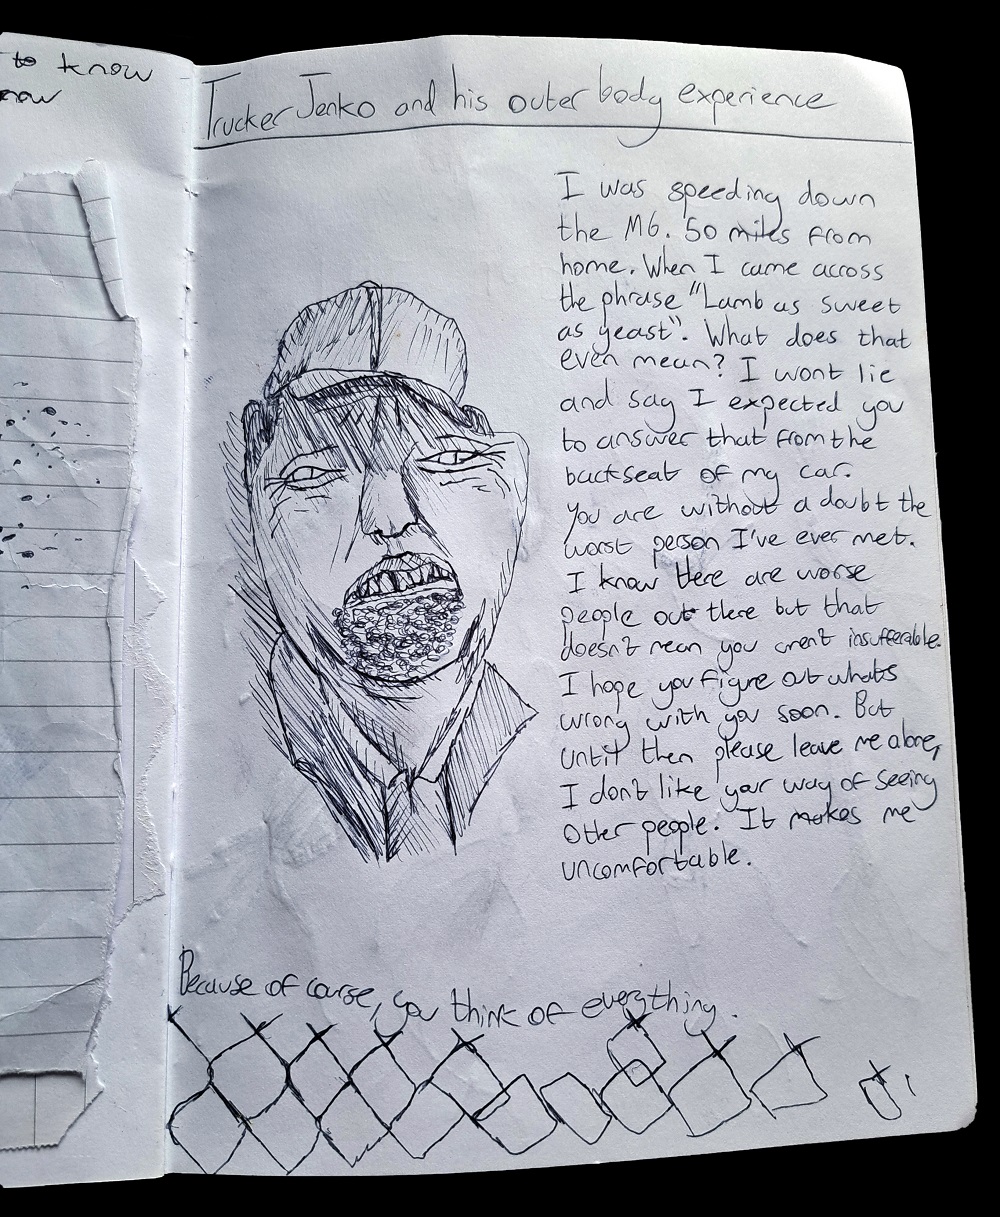 to know
now
Trucker Jenko and his outer body experience
I was speeding down
the M6. 50 miles from
home. When I came across
the phrase "Lamb as sweet
as yeast". What does that
even mean? I wont lie
and say I expected you
to answer that from the
backseat of my car.
You are without a doubt the
worst person I've ever met.
I know there are worse
people out there but that
doesn't mean you aren't insufferable.
I hope you figure out whats
wrong with you soon. But
until then please leave me alone,
I don't like your way of seeing
other people. It makes me
uncomfortable.
Because of course, you think of everything.